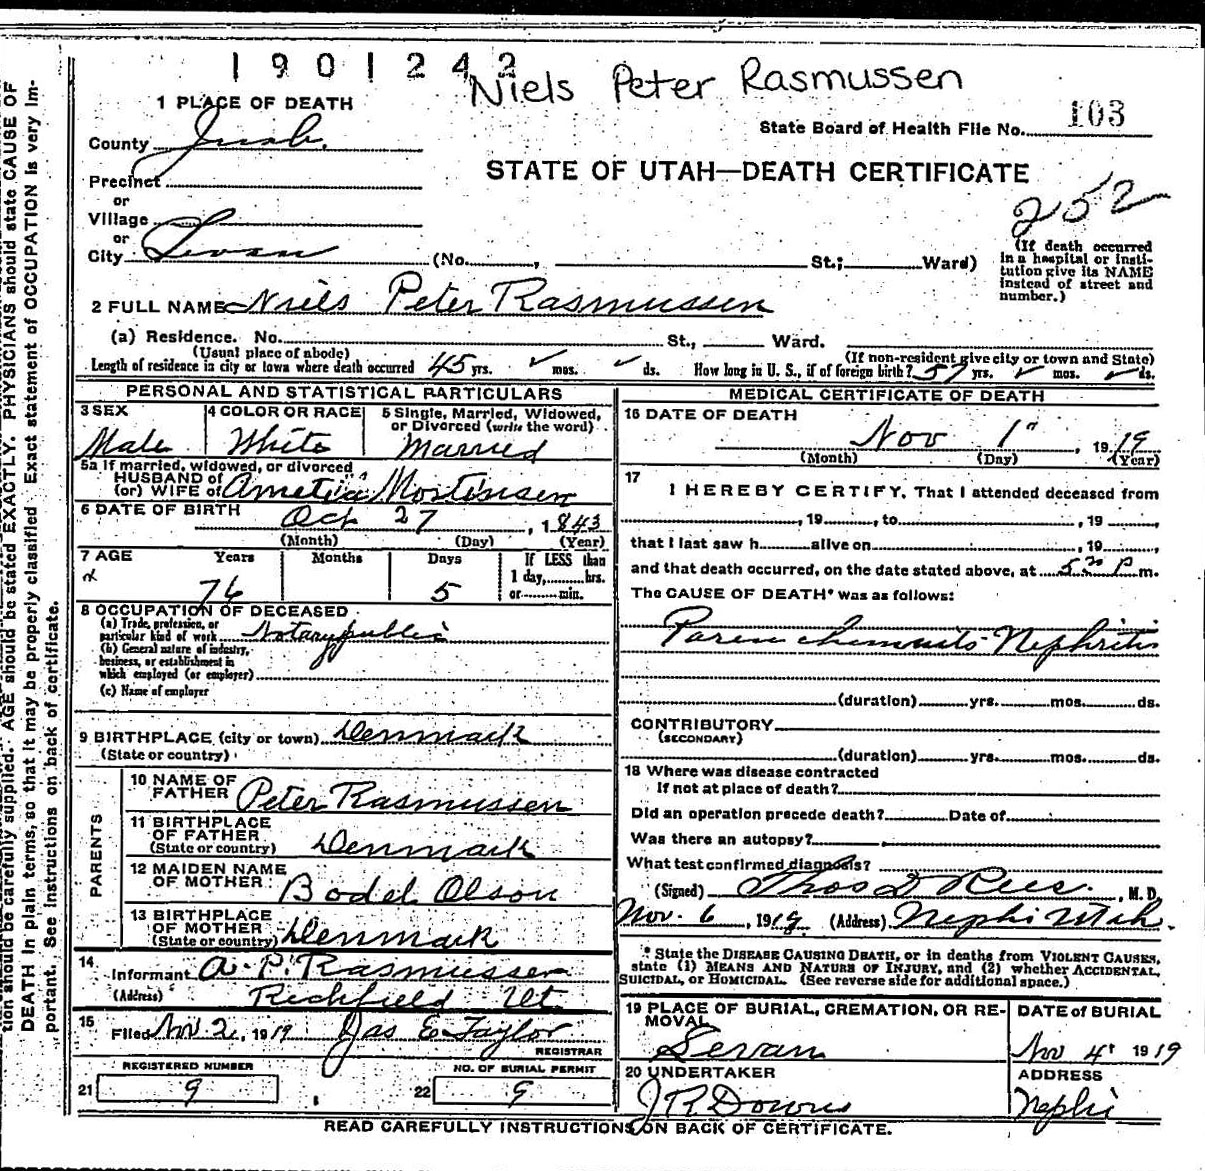 1901242
Niels Peter Rasmussen
1 PLACE OF DEATH
State Board of Health File No. 103
County Juab.
STATE OF UTAH—DEATH CERTIFICATE
Precinct
or
252
Village
or
City Levan (No. , St.; Ward)
(If death occurred
in a hospital or insti-
tution give its NAME
instead of street and
number.)
2 FULL NAME Niels Peter Rasmussen
(a) Residence. No. St., Ward.
(Usual place of abode) (If non-resident give city or town and State)
Length of residence in city or town where death occurred 45 yrs. ✓ mos. ✓ ds. How long in U. S., if of foreign birth? 57 yrs. ✓ mos. ✓ ds.
PERSONAL AND STATISTICAL PARTICULARS
3 SEX 4 COLOR OR RACE 5 Single, Married, Widowed,
or Divorced (write the word)
Male White Married
5a If married, widowed, or divorced
HUSBAND of
(or) WIFE of Ametia Mortensen
6 DATE OF BIRTH
Oct 27, 1843
(Month) (Day) (Year)
7 AGE Years Months Days If LESS than
1 day, hrs.
or min.
76 5
8 OCCUPATION OF DECEASED
(a) Trade, profession, or
particular kind of work Notary public
(b) General nature of industry,
business, or establishment in
which employed (or employer)
(c) Name of employer
9 BIRTHPLACE (city or town) Denmark
(State or country)
PARENTS
10 NAME OF
FATHER Peter Rasmussen
11 BIRTHPLACE
OF FATHER
(State or country) Denmark
12 MAIDEN NAME
OF MOTHER Bodel Olson
13 BIRTHPLACE
OF MOTHER
(State or country) Denmark
14
Informant A. P. Rasmussen
(Address) Richfield Ut.
15
Filed Nov 2, 1919 Jas E Taylor
REGISTRAR
REGISTERED NUMBER NO. OF BURIAL PERMIT
21 9 22 9
MEDICAL CERTIFICATE OF DEATH
16 DATE OF DEATH
Nov 1" 1919
(Month) (Day) (Year)
17
I HEREBY CERTIFY, That I attended deceased from
, 19 , to , 19 ,
that I last saw h alive on , 19 ,
and that death occurred, on the date stated above, at 5 30 P m.
The CAUSE OF DEATH* was as follows:
Nephritis
(duration) yrs. mos. ds.
CONTRIBUTORY
(SECONDARY)
(duration) yrs. mos. ds.
18 Where was disease contracted
If not at place of death?
Did an operation precede death? Date of
Was there an autopsy?
What test confirmed diagnosis?
(Signed) Thos D Rees., M. D.
Nov. 6, 1919 (Address) Nephi Utah.
* State the DISEASE CAUSING DEATH, or in deaths from VIOLENT CAUSES,
state (1) MEANS AND NATURE OF INJURY, and (2) whether ACCIDENTAL,
SUICIDAL, or HOMICIDAL. (See reverse side for additional space.)
19 PLACE OF BURIAL, CREMATION, OR RE-
MOVAL
Levan
DATE of BURIAL
Nov 4" 1919
20 UNDERTAKER
J R Downs
ADDRESS
Nephi
READ CAREFULLY INSTRUCTIONS ON BACK OF CERTIFICATE.
tion should be carefully supplied. AGE should be stated EXACTLY. PHYSICIANS should state CAUSE OF
DEATH in plain terms, so that it may be properly classified. Exact statement of OCCUPATION is very im-
portant. See instructions on back of certificate.